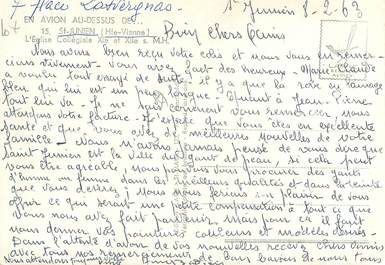 7 Place Lasvergnas
St Junien 8-2-63
EN AVION AU-DESSUS DE
15, St-JUNIEN (Hte-Vienne)
L'Eglise Collégiale XIe et XIIe s. M.H.
Bien Chers Amis
Nous avons bien reçu votre colis et nous vous en remer-
cions vivement. Vous avez fait des heureux. Marie Claude
a voulu tout essayé de suite. il n'y a que la robe en lainage
bleu qui lui est un peu longue. Quant à Jean-Pierre
tout lui va. Je ne sais comment vous remercier, nous
attendons votre facture. J'espère que vous êtes en excellente
santé et que vous avez de meilleures nouvelles de votre
famille. Nous n'avons jamais pensé de vous dire que
Saint Junien est la ville du gant de peau, si cela peut
vous être agréable, nous pouvons vous procurer des gants
d'homme ou femme dans les meilleures qualités et dans la teinte
que vous désirez, nous nous ferions un plaisir de vous
offrir ce qui serait une petite compensation à tout ce que
vous nous avez fait parvenir, mais pour ça il faut
nous donner vos pointures, couleurs et modèles désirés.
Dans l'attente d'avoir de vos nouvelles recevez chers amis
avec tous nos remerciements de bons baisers de nous tous